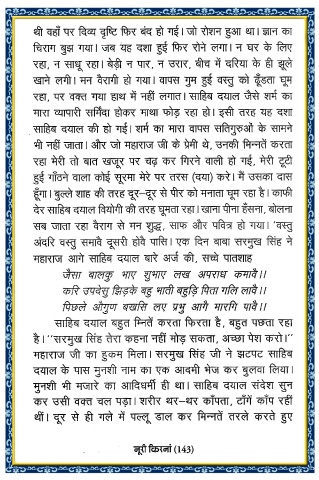 थी वहाँ पर दिव्य दृष्टि फिर बंद हो गई। जो रोशन हुआ था। ज्ञान का
चिराग बुझ गया। जब यह दशा हुई फिर रोने लगा। न घर के लिए
रहा, न साधू रहा। बेड़ी न पार, न उरार, बीच में दरिया के ही झूले
खाने लगी। मन वैरागी हो गया। वापस गुम हुई वस्तु को ढूँढता घूम
रहा, पर वक्त गया हाथ में नहीं लगात। साहिब दयाल जैसे शर्म का
मारा व्यापारी सर्मिंदा होकर माथा फोड़ रहा हो। इसी तरह यह दशा
साहिब दयाल की हो गई। शर्म का मारा वापस सतिगुरुओं के सामने
भी नहीं जाता। और जो महाराज जी के प्रेमी थे, उनकी मिन्नतें करता
रहा मेरी तो बात खजूर पर चढ़ कर गिरने वाली हो गई, मेरी टूटी
हुई गाँठने वाला कोई सूरमा मेरे पर तरस (दया) करे। मैं उसका दास
हूँगा। बुल्ले शाह की तरह दूर-दूर से पीर को मनाता घूम रहा है। काफी
देर साहिब दयाल वियोगी की तरह घूमता रहा। खाना पीना हँसना, बोलना
सब जाता रहा वैराग से मन शुद्ध, साफ और पवित्र हो गया। 'वस्तु
अंदरि वस्तु समावै दूसरी होवै पासि। एक दिन बाबा सरमुख सिंह ने
महाराज आगे साहिब दयाल बारे अर्ज की, सच्चे पातशाह
जैसा बालकु भाए सुभाए लख अपराध कमावै।।
करि उपदेसु झिड़के बहु भाती बहुड़ि पिता गलि लावै।।
पिछले औगुण बखसि लए प्रभु आगै मारगि पावै।।
साहिब दयाल बहुत म्नितें करता फिरता है, बहुत पछता रहा
है। ''सरमुख सिंह तेरा कहना नहीं मोड़ सकता, अच्छा पेश करो।''
महाराज जी का हुकम मिला। सरमुख सिंह जी ने झटपट साहिब
दयाल के पास मुनशी नाम का एक आदमी भेज कर बुलवा लिया।
मुनशी भी मजारे का आदिधर्मी ही था। साहिब दयाल संदेश सुन
कर उसी वक्त चल पड़ा। शरीर थर-थर काँपता, टाँगें काँप रहीं
थीं। दूर से ही गले में पल्लू डाल कर मिन्नतें तरले करते हुए
नूरी किरनां (143)